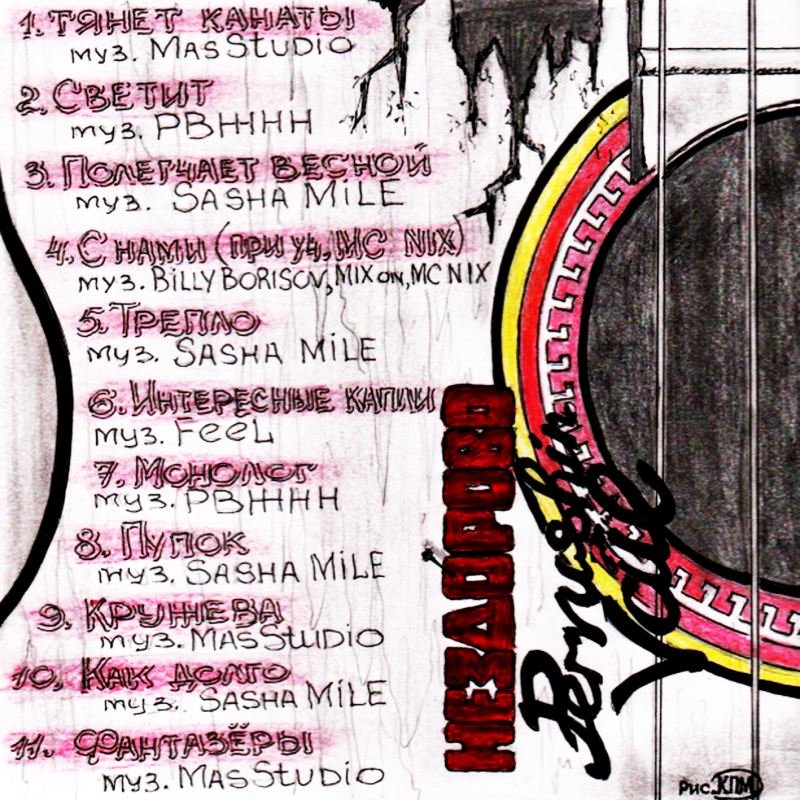 1. ТЯНЕТ КАНАТЫ
муз. MASSTUDIO
2. СВЕТИТ
муз. РВННН
3. ПОЛЕГЧАЕТ ВЕСНОЙ
муз. SASHA MiLE
4. С НАМИ (ПРИ УЧ. MC NIX)
муз. BiLLY BORISOV, MIX ON, MC NIX
5. ТРЕПЛО
муз. SASHA MiLE
6. ИНТЕРЕСНЫЕ КАПЛИ
муз. FEEL
7. МОНОЛОГ
муз. РВННН
8. ПУПОК
муз. SASHA MiLE
9. КРУЖЕВА
муз. MASSTUDIO
10. КАК ДОЛГО
муз. SASHA MiLE
11. ФАНТАЗЁРЫ
муз. MASSTUDIO
НЕЗДОРОВО
Рис. КПМ